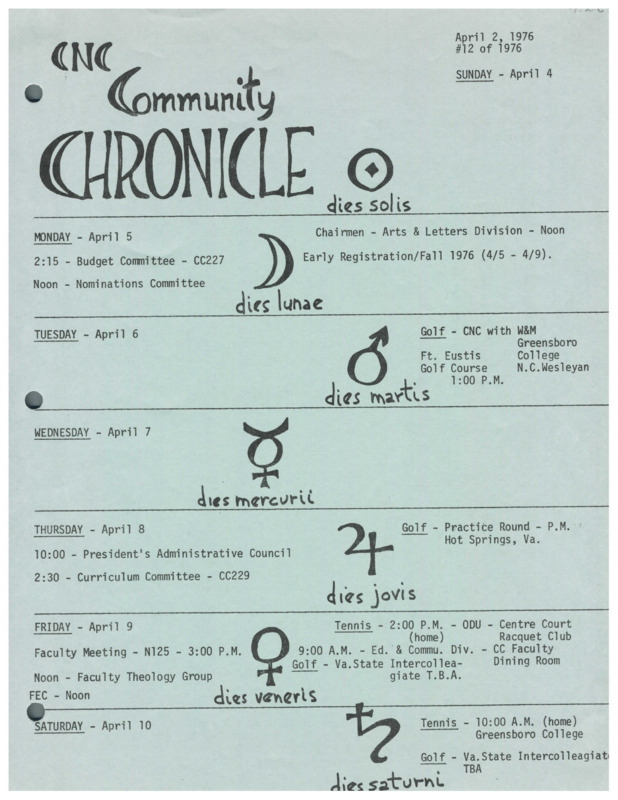 CNC
Community
CHRONICLE
April 2, 1976
#12 of 1976
SUNDAY - April 4
dies solis
MONDAY - April 5
2:15 - Budget Committee - CC227
Noon - Nominations Committee
dies lunae
Chairmen - Arts & Letters Division - Noon
Early Registration/Fall 1976 (4/5 - 4/9).
TUESDAY - April 6
dies martis
Golf - CNC with W&M
Greensboro
Ft. Eustis College
Golf Course N.C.Wesleyan
1:00 P.M.
WEDNESDAY - April 7
dies mercurii
THURSDAY - April 8
10:00 - President's Administrative Council
2:30 - Curriculum Committee - CC229
dies jovis
Golf - Practice Round - P.M.
Hot Springs, Va.
FRIDAY - April 9
Faculty Meeting - N125 - 3:00 P.M.
Noon - Faculty Theology Group
FEC - Noon
dies veneris
Tennis - 2:00 P.M. - ODU - Centre Court
(home) Racquet Club
9:00 A.M. - Ed. & Commu. Div. - CC Faculty
Dining Room
Golf - Va.State Intercollea-
giate T.B.A.
SATURDAY - April 10
dies saturni
Tennis - 10:00 A.M. (home)
Greensboro College
Golf - Va.State Intercolleagiat
TBA